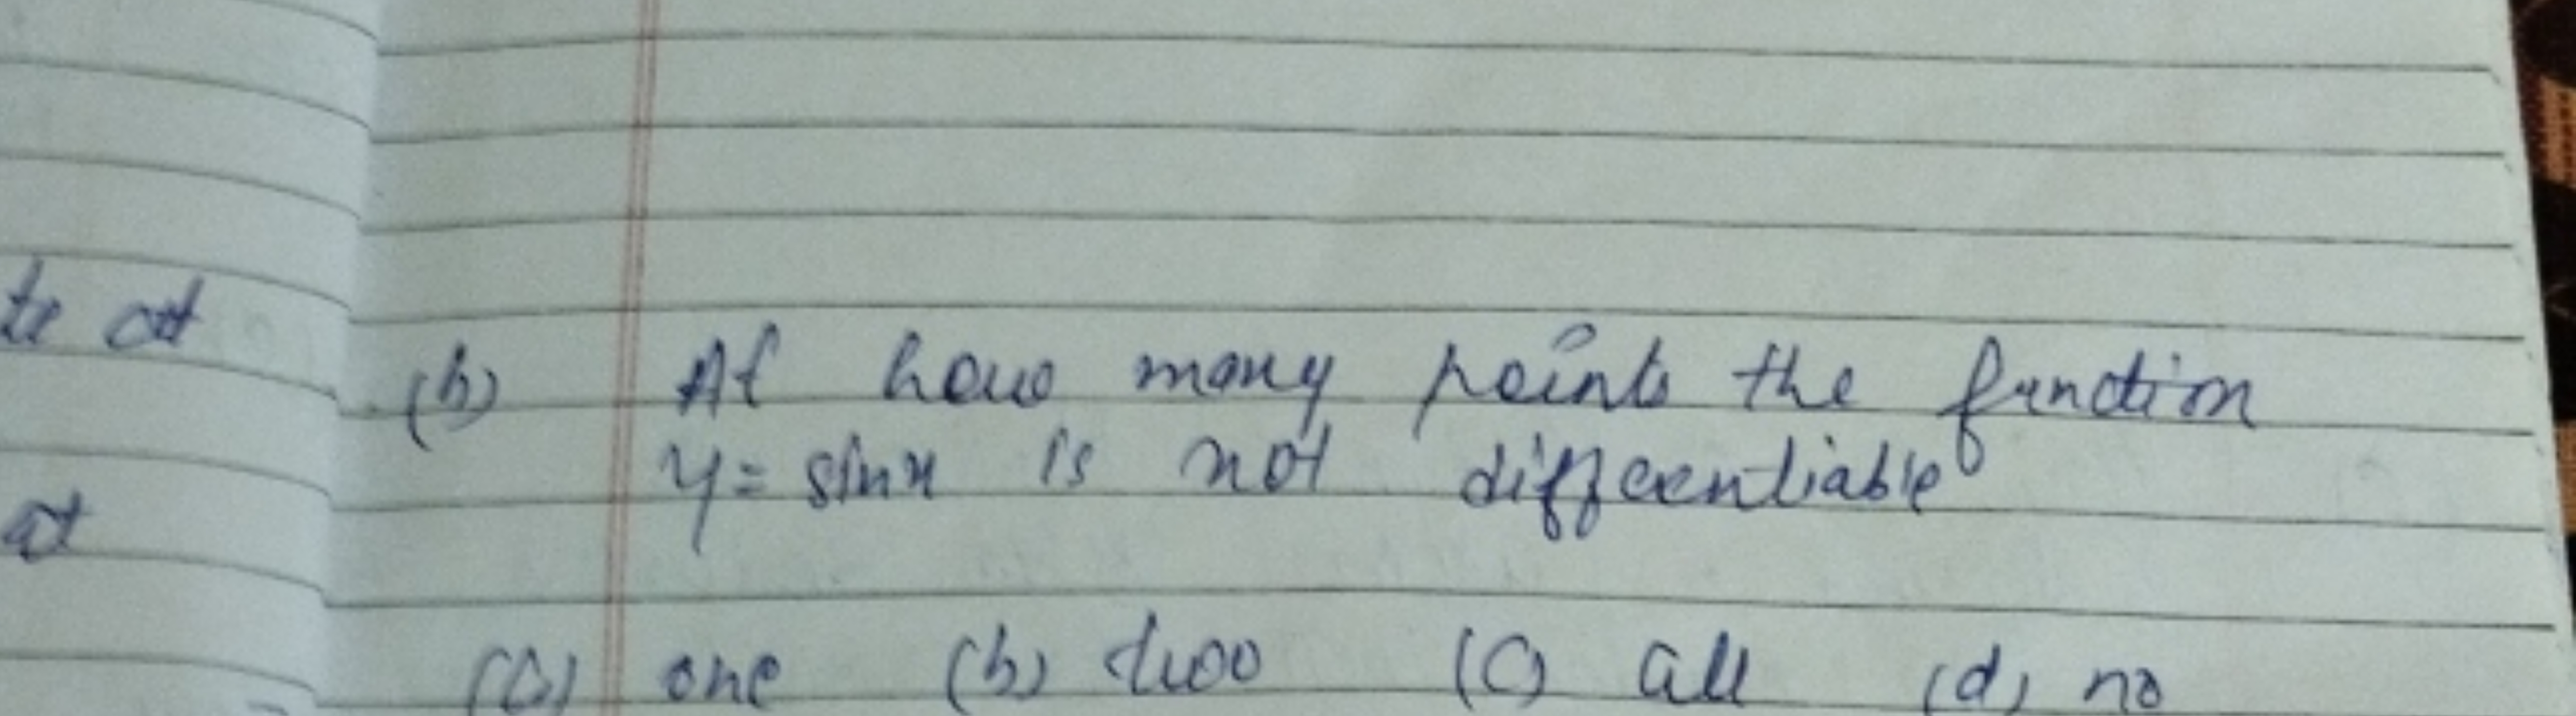 te at
at
(h) At how many points the function
y = sinx is not differentiable
(a) one (b) two (c) all (d) no